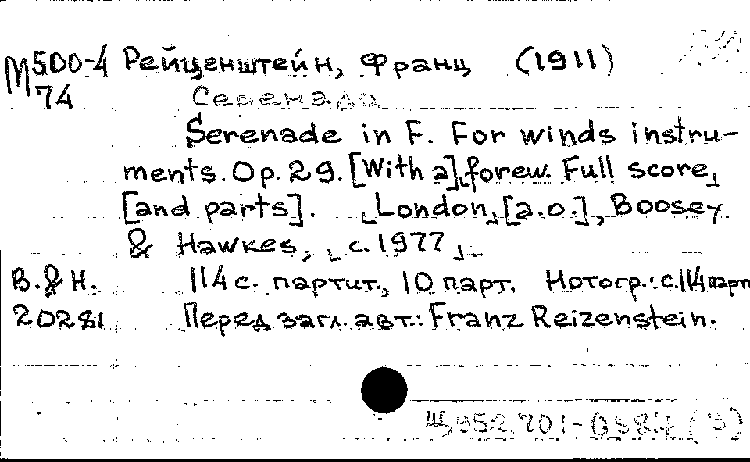 М500-4 Рейценштейн, Франц (1911)
74 Серенада
Serenade in F. For winds instru-
ments. Op. 29. [With a] forew. Full score
[and parts]. London, [a.o.], Boosey
& Hawkes, c. 1977
B. & H. 114 с. партит., 10 парт. Нотогр.: с. 114 парт
20281 Перед загл. авт.: Franz Reizenstein.
Щ952.701-